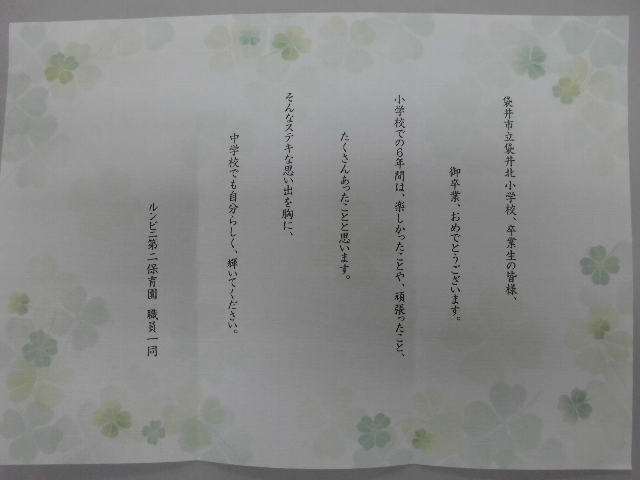 袋井市立袋井北小学校、卒業生の皆様、
御卒業、おめでとうございます。
小学校での6年間は、楽しかったことや、頑張ったこと、
たくさんあったことと思います。
そんなステキな思い出を胸に、
中学校でも自分らしく、輝いてください。
ルンビニ第二保育園 職員一同